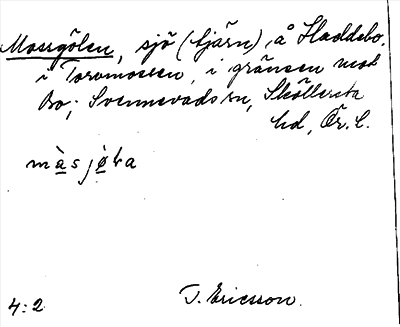 Mossgölen, sjö (tjärn), å Haddebo,
i Toromossen, i gränsen mot
Bo; Svennevads sn, Sköllersta
hd, Ör. l.
màsjö̀ka
4:2
T. Ericsson.